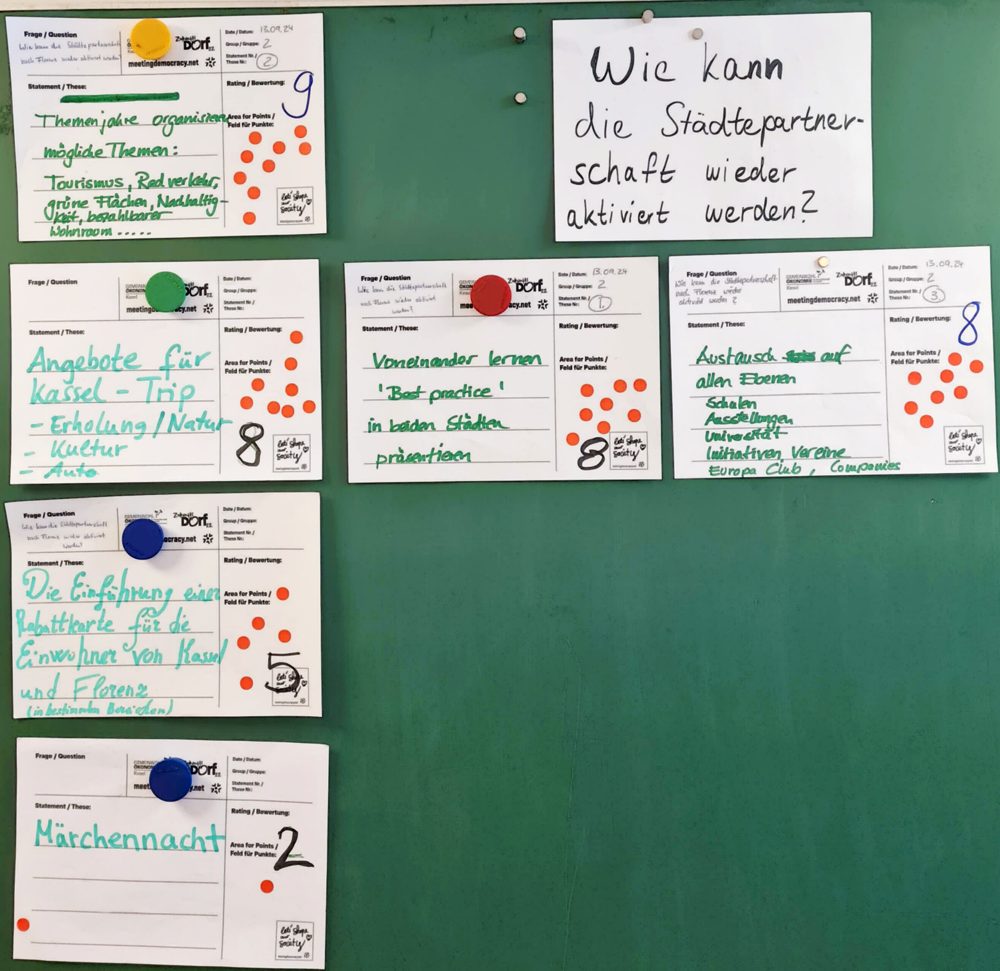 Frage / Question
Wie kann die Städtepartnerschaft
nach Florenz wieder aktiviert werden?
Zukunfts
DORF22
meetingdemocracy.net
Date / Datum: 13.09.24
Group / Gruppe: 2
Statement Nr. / These Nr.: 2
Statement / These:
Rating / Bewertung:
9
Area for Points /
Feld für Punkte:
Themenjahre organisieren
mögliche Themen:
Tourismus, Radverkehr,
grüne Flächen, Nachhaltig-
keit, bezahlbarer
Wohnraum .....
let's shape
our
society
Wie kann
die Städtepartner-
schaft wieder
aktiviert werden?
Frage / Question
Kassel
DORF22
meetingdemocracy.net
Date / Datum:
Group / Gruppe:
Statement Nr. /
These Nr.:
Statement / These:
Area for Points /
Feld für Punkte:
Angebote für
Kassel - Trip
- Erholung / Natur
- Kultur
- Auto
8
let's shape
our
society
Frage / Question
Wie kann die Städtepartnerschaft
nach Florenz wieder aktiviert
werden?
GEMEINWOHL
ÖKONOMIE
Kassel
Zukunfts
DORF22
meetingdemocracy.net
Date / Datum: 13.09.24
Group / Gruppe: 2
Statement Nr. /
These Nr.: 1.
Statement / These:
Rating / Bewertung:
Area for Points /
Feld für Punkte:
Voneinander lernen
'Best practice'
in beiden Städten
präsentieren
8
let's shape
our
society
Frage / Question
Wie kann die Städtepartnerschaft
nach Florenz wieder
aktiviert werden?
GEMEINWOHL
ÖKONOMIE
Kassel
Zukunfts
DORF22
meetingdemocracy.net
Date / Datum: 13.09.24
Group / Gruppe: 2
Statement Nr. /
These Nr.: 3.
Statement / These:
Rating / Bewertung:
8
Area for Points /
Feld für Punkte:
Austausch auf
allen Ebenen
Schulen
Ausstellungen
Universität
Initiativen, Vereine
Europa Club, Companies
let's shape
our
society
Frage / Question
Wie kann die Städtepartnerschaft
nach Florenz wieder aktiviert
werden?
GEMEINWOHL
Zukunfts
DORF22
meetingdemocracy.net
Date / Datum:
Group / Gruppe:
Statement Nr. /
These Nr.:
Statement / These:
Rating / Bewertung:
Area for Points /
Feld für Punkte:
Die Einführung einer
Rabattkarte für die
Einwohner von Kassel
und Florenz
(in bestimmten Bereichen)
5
let's shape
our
society
Frage / Question
GEMEINWOHL
ÖKONOMIE
Kassel
DORF22
Date / Datum:
Group / Gruppe:
Statement Nr. /
These Nr.:
Statement / These:
Rating / Bewertung:
Area for Points /
Feld für Punkte:
Märchennacht
2
let's shape
our
society